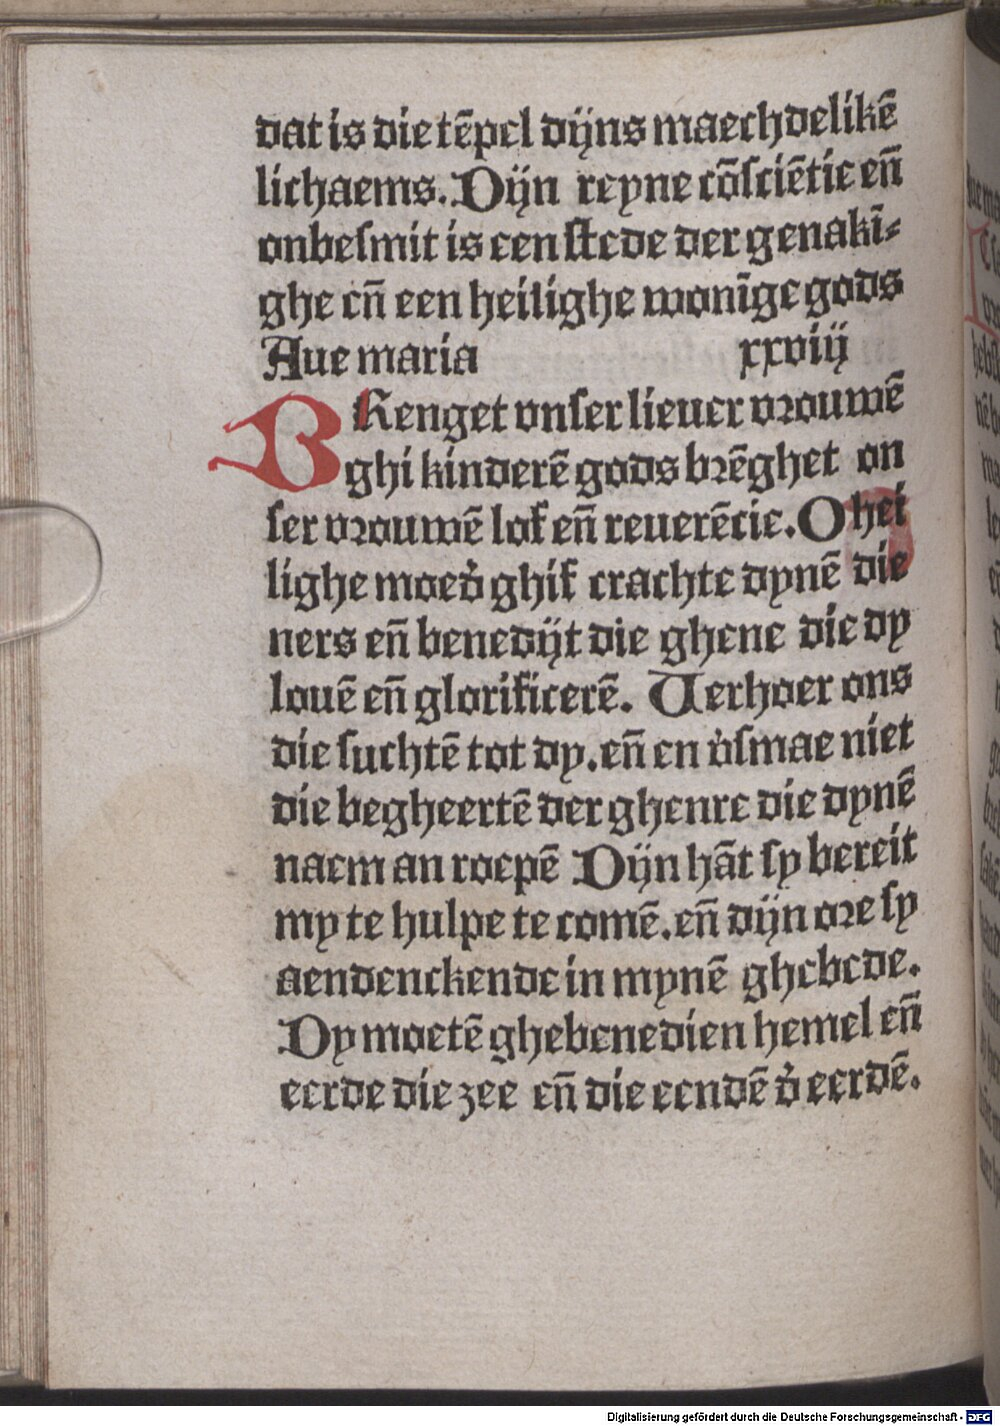 dat is die tēpel dijns maechdelikē
lichaems. Dijn reyne cōsciētie en̄
onbesmit is een stede der genakī⸗
ghe en̄ een heilighe wonīge gods
Aue maria xxviij
BRenget vnser lieuer vrouwē
ghi kinderē gods brēghet on
ser vrouwē lof en̄ reuerēcie. O hei
lighe moed̕ ghif crachte dynē die
ners en̄ benedijt die ghene die dy
louē en̄ glorificerē. Uerhoer ons
die suchtē tot dy. en̄ en v̕smae niet
die begheertē der ghenre die dynē
naem an roepē Dijn hāt sy bereit
my te hulpe te comē. en̄ dijn ore sy
aendenckende in mynē ghebede.
Dy moetē ghebenedien hemel en̄
eerde die zee en̄ die eendē d̕ eerdē.
Digitalisierung gefördert durch die Deutsche Forschungsgemeinschaft - DFG